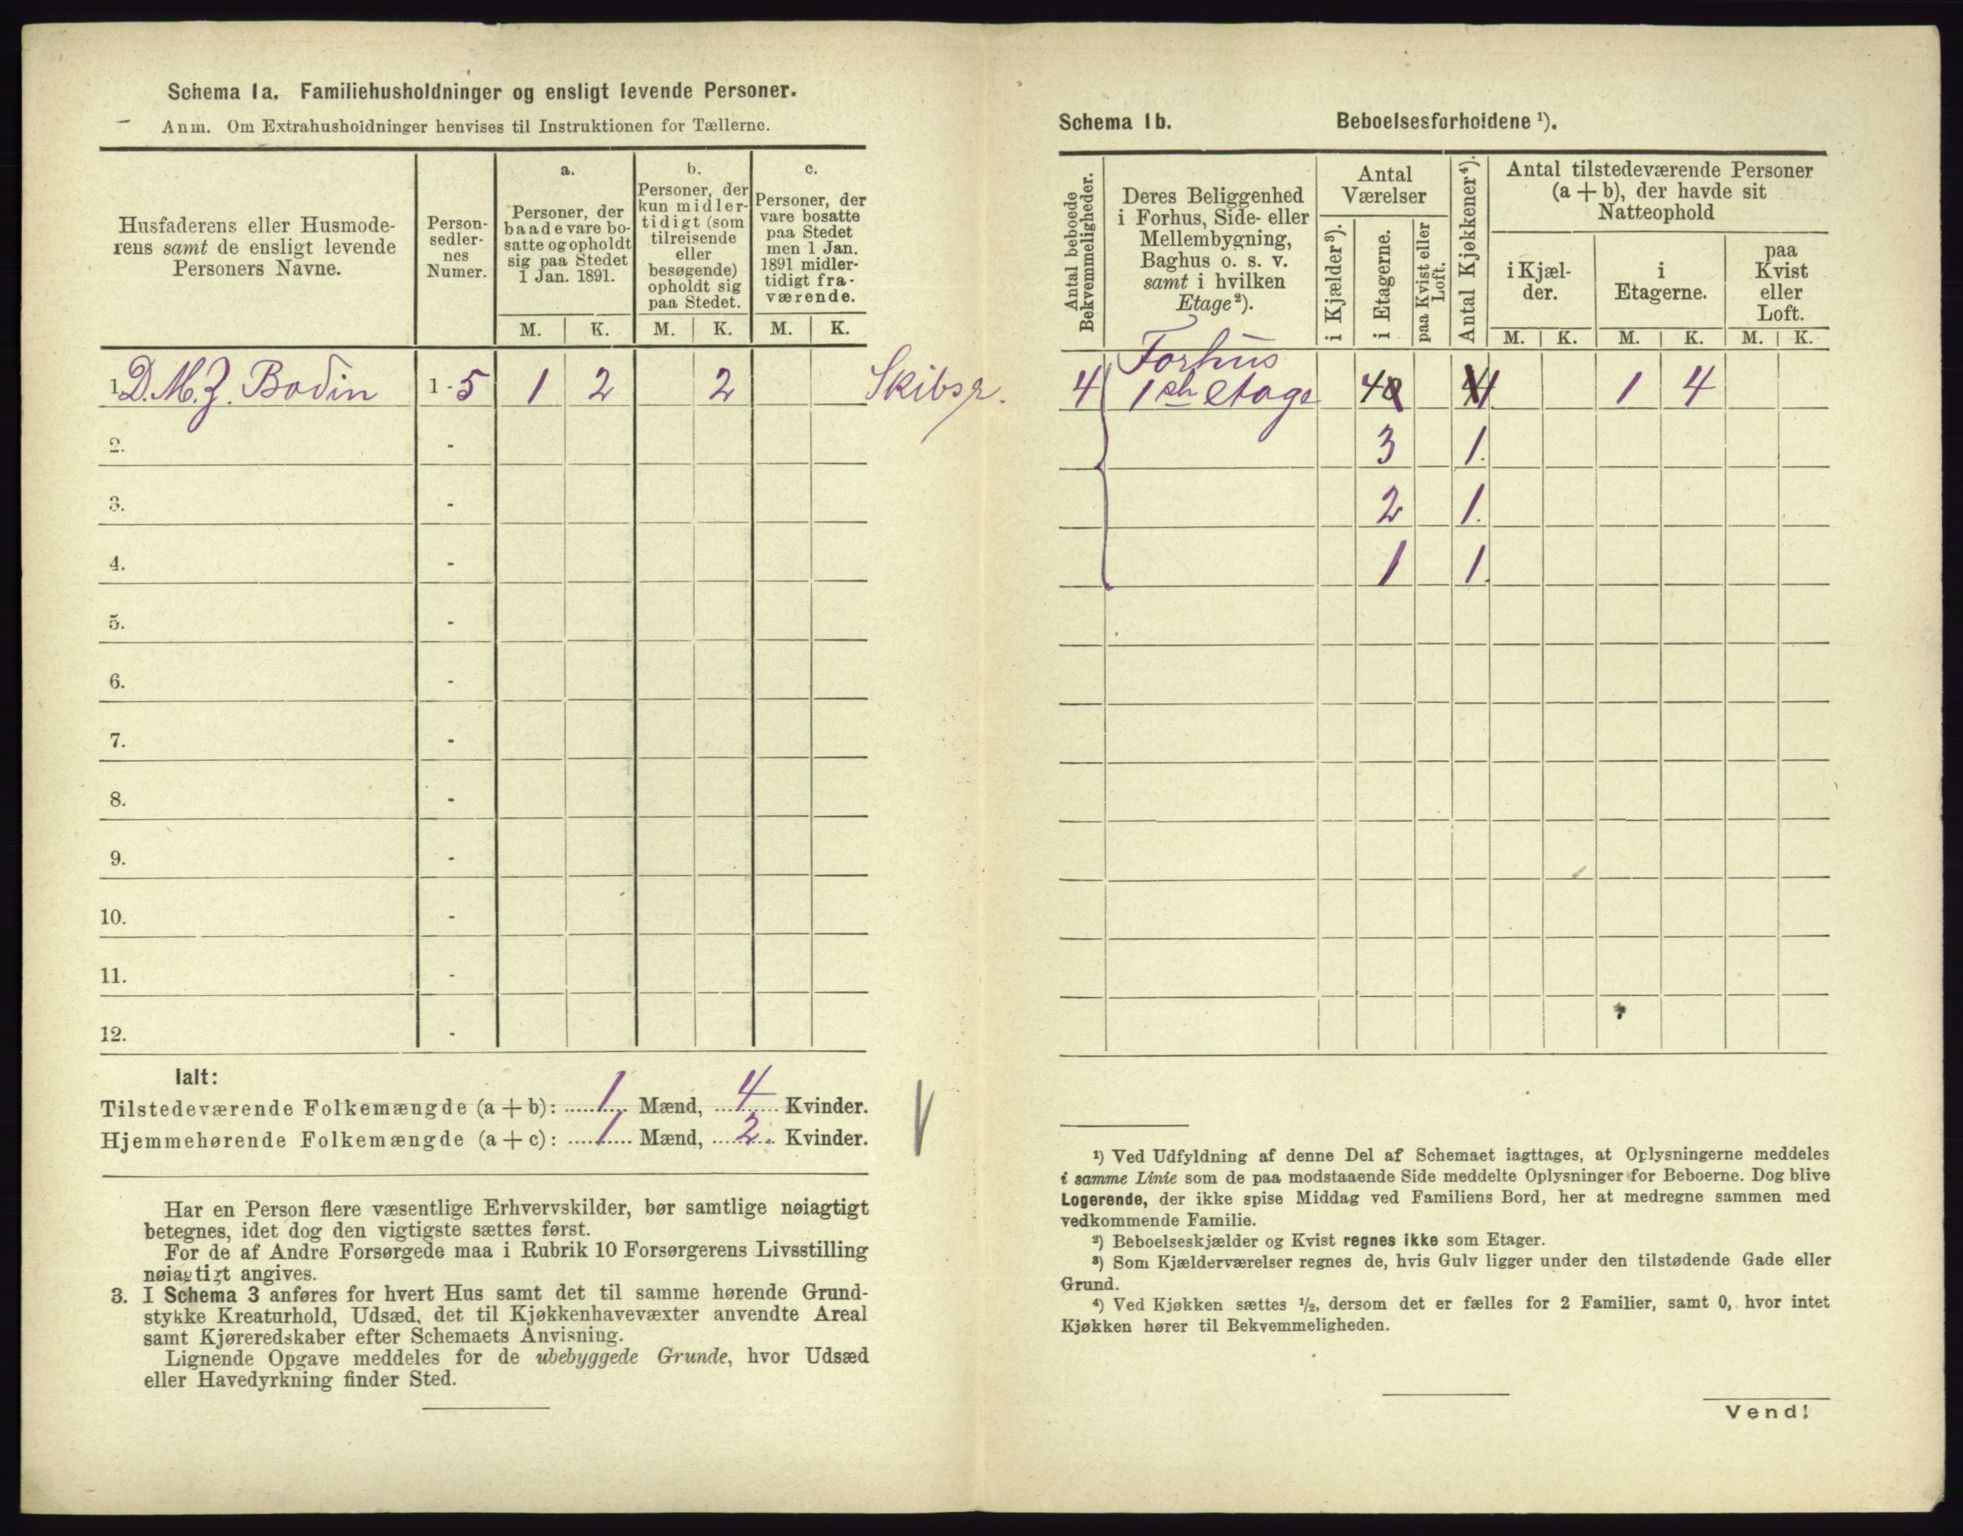 Schema 1a. Familiehusholdninger og ensligt levende Personer.
Anm. Om Extrahusholdninger henvises til Instruktionen for Tællerne.
Husfaderens eller Husmode-
rens samt de ensligt levende
Personers Navne.
Person-
sedler-
nes
Numer.
a.
Personer, der
baade vare bo-
satte og opholdt
sig paa Stedet
1 Jan. 1891.
b.
Personer, der
kun midler-
tidigt (som
tilreisende
eller
besøgende)
opholdt sig
paa Stedet.
c.
Personer, der
vare bosatte
paa Stedet
men 1 Jan.
1891 midler-
tidigt fra-
værende.
M. K. M. K. M. K.
1. D. M. Z. Bodin 1 - 5 1 2 2 Skibsr.
2. -
3. -
4. -
5. -
6. -
7. -
8. -
9. -
10. -
11. -
12. -
Ialt:
Tilstedeværende Folkemængde (a + b): 1 Mænd, 4 Kvinder.
Hjemmehørende Folkemængde (a + c): 1 Mænd, 2. Kvinder.
Har en Person flere væsentlige Erhvervskilder, bør samtlige nøiagtigt
betegnes, idet dog den vigtigste sættes først.
For de af Andre Forsørgede maa i Rubrik 10 Forsørgerens Livsstilling
nøiagtigt angives.
3. I Schema 3 anføres for hvert Hus samt det til samme hørende Grund-
stykke Kreaturhold, Udsæd, det til Kjøkkenhavevæxter anvendte Areal
samt Kjøreredskaber efter Schemaets Anvisning.
Lignende Opgave meddeles for de ubebyggede Grunde, hvor Udsæd
eller Havedyrkning finder Sted.
Schema 1b. Beboelsesforholdene ¹).
Antal beboede
Bekvemmeligheder.
Deres Beliggenhed
i Forhus, Side- eller
Mellembygning,
Baghus o. s. v.
samt i hvilken
Etage²).
Antal
Værelser
i Kjælder³).
i Etagerne.
paa Kvist eller
Loft.
Antal Kjøkkener⁴).
Antal tilstedeværende Personer
(a + b), der havde sit
Natteophold
i Kjæl-
der.
i
Etagerne.
paa
Kvist
eller
Loft.
M. K. M. K. M. K.
Forhus
4 1ste etage 4 1 1 4
3 1.
2 1.
1 1.
¹) Ved Udfyldning af denne Del af Schemaet iagttages, at Oplysningerne meddeles
i samme Linie som de paa modstaaende Side meddelte Oplysninger for Beboerne. Dog blive
Logerende, der ikke spise Middag ved Familiens Bord, her at medregne sammen med
vedkommende Familie.
²) Beboelseskjælder og Kvist regnes ikke som Etager.
³) Som Kjælderværelser regnes de, hvis Gulv ligger under den tilstødende Gade eller
Grund.
⁴) Ved Kjøkken sættes ½, dersom det er fælles for 2 Familier, samt 0, hvor intet
Kjøkken hører til Bekvemmeligheden.
Vend!